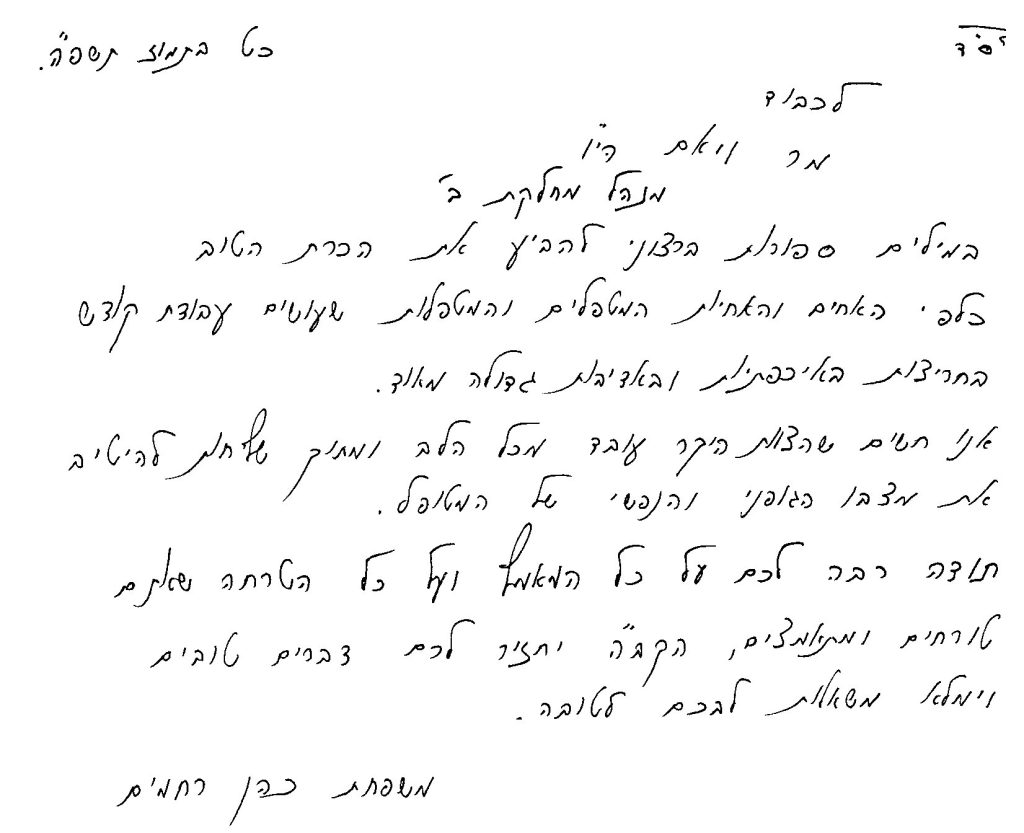 בס"ד
כט בתמוז תשפ"ה.
לכבוד
מר ויאם הי"ו
מנהל מחלקת ב'
במילים ספורות ברצוני להביע את הכרת הטוב
כלפי האחים והאחיות המטפלים והמטפלות שעושים עבודת קודש
בחריצות באיכפתיות ובאדיבות גדולה מאוד.
אנו חשים שהצוות היקר עובד מכל הלב ומתוך שליחות להיטיב
את מצבו הגופני והנפשי של המטופל.
תודה רבה לכם על כל המאמץ ועל כל הטרחה שאתם
טורחים ומתאמצים, הקב"ה יחזיר לכם דברים טובים
וימלא משאלות לבכם לטובה.
משפחת כהן רחמים